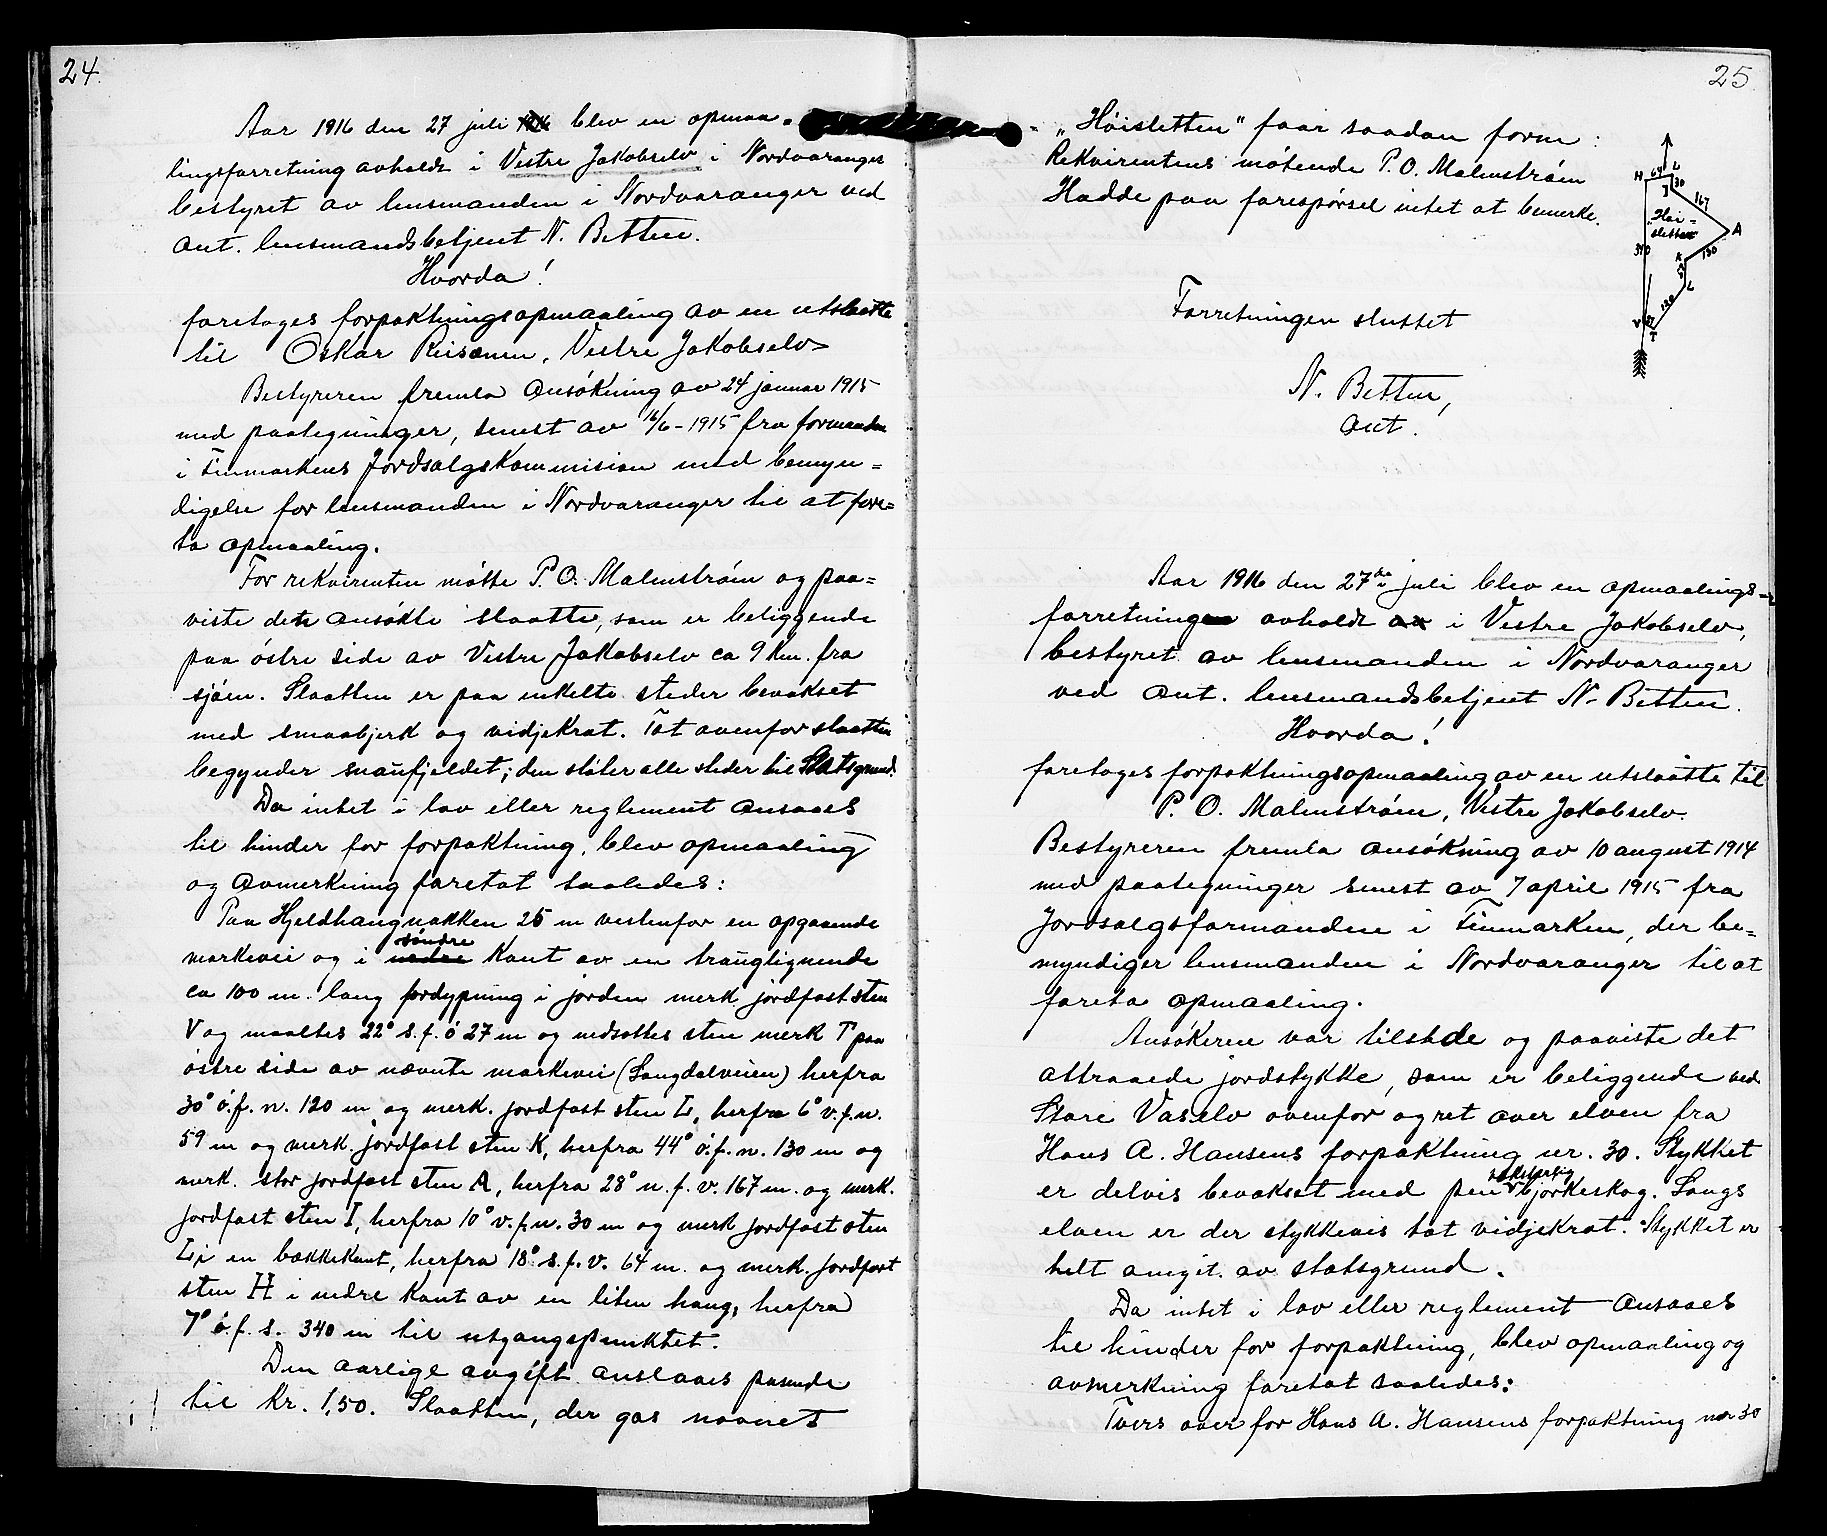 24.
Aar 1916 den 27 juli 1916 blev en opmaa-
lingsforretning avholdt i Vestre Jakobselv i Nordvaranger
bestyret av lensmanden i Nordvaranger ved
Const. lensmandsbetjent N. Betten.
Hvorda!
foretages forpaktningsopmaaling av en utslaatte
til Oskar Reisænen, Vestre Jakobselv
Bestyreren fremla ansökning av 24 januar 1915
med paategninger, senest av 16/6-1915 fra formanden
i Finmarkens Jordsalgskommision med bemyn=
digelse for lensmanden i Nordvaranger til at fore=
ta opmaaling.
For rekvirenten mötte P. O. Malmström og paa=
viste den ansökte slaatte, som er beliggende
paa östre side av Vestre Jakobselv ca 9 km. fra
sjöen. Slaatten er paa enkelte steder bevokset
med smaabjerk og vidjekrat. Tæt ovenfor slaatten
begynder snaufjeldet; den stöter alle steder til Statsgrund.
Da intet i lov eller reglement ansaaes
til hinder for forpaktning, blev opmaaling
og avmerkning foretat saaledes:
Paa Hjeldhaugnakken 25 m vestenfor en opgaaende
söndre
markevei og i nedre kant av en trauglignende
ca 100 m. lang fordypning i jorden merk. jordfast sten
V og maaltes 22° s.f.ö 27 m og nedsattes sten merk T paa
östre side av nævnte markevei (Langdalveien) herfra
30° ö.f.n. 120 m og merk. jordfast sten L, herfra 6° v.f.n.
59 m og merk. jordfast sten K, herfra 44° ö.f.n. 130 m og
merk. stor jordfast sten A, herfra 28° n.f.v. 167 m. og merk.
jordfast sten I, herfra 10° v.f.n. 30 m og merk jordfast sten
L i en bækkekant, herfra 18° s.f.v. 64 m. og merk. jordfast
sten H i nedre kant av en liten haug, herfra
7° ö.f.s. 340 m til utgangspunktet.
Den aarlige avgift ansaaes passende
til kr. 1,50. Slaatten, der gas navnet
25
"Höisletten" faar saadan form:
Rekvirentens mötende P. O. Malmström
Hadde paa forespörsel intet at bemerke.
H 64 L
30
I
167
"Höi-
sletten"
A
340
K
130
59
L
120
V 27
T
Forretningen sluttet
N. Betten,
const.
Aar 1916 den 27de juli blev en opmaalings-
forretning avholdt i Vestre Jakobselv,
bestyret av lensmanden i Nordvaranger
ved const. lensmandsbetjent N. Betten.
Hvorda!
foretages forpaktningsopmaaling av en utslaatte til
P. O. Malmström, Vestre Jakobselv.
Bestyreren fremla ansökning av 10 august 1914
med paategninger senest av 7 april 1915 fra
Jordsalgsformanden i Finmarken, der be=
myndiger lensmanden i Nordvaranger til at
foreta opmaaling.
Ansökeren var tilstede og paaviste det
attraaede jordstykke, som er beliggende ved
Store Vaselv ovenfor og ret over elven fra
Hans A. Hansens forpaktning nr. 30. Stykket
er delvis bevokset med pen vekstfrisk björkeskog. Langs
elven er der stykkevis tæt vidjekrat. Stykket er
helt omgit av statsgrund.
Da intet i lov eller reglement ansaaes
til hinder for forpaktning, blev opmaaling og
avmerkning foretat saaledes:
Tvers over for Hans A. Hansens forpaktning nr 30